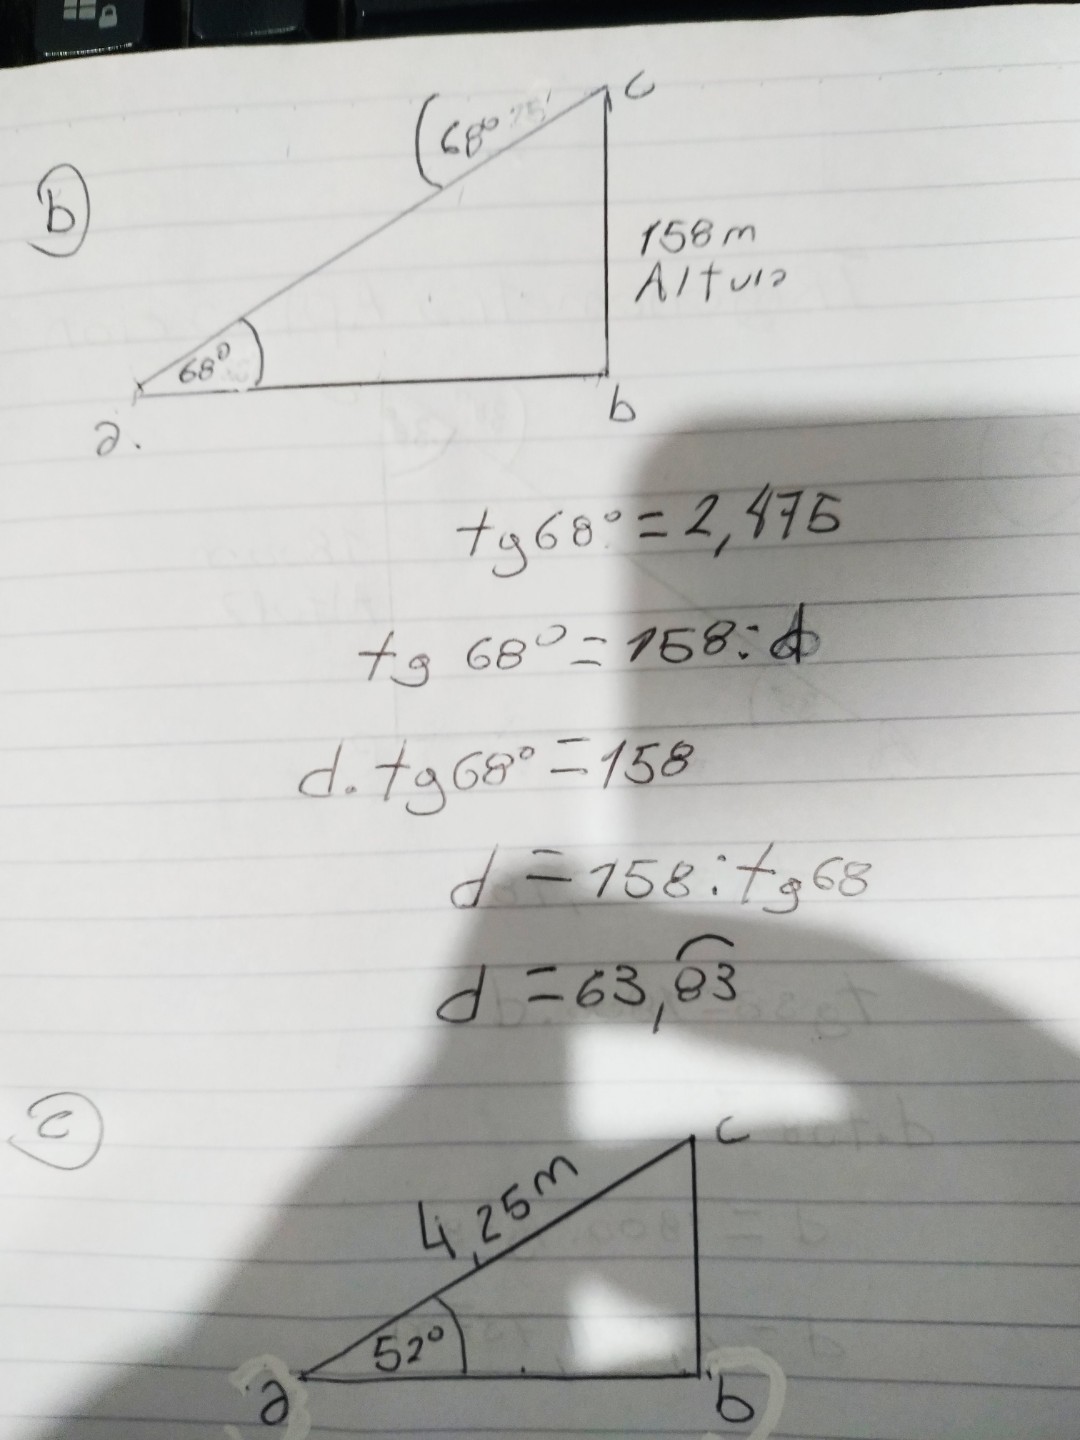 c
68°
b
158m
Altura
68°
a.
b
tg68°=2,475
tg 68°=158:d
d.tg68°=158
d=158:tg68
d=63,83
c
c
4,25m
52°
a
b